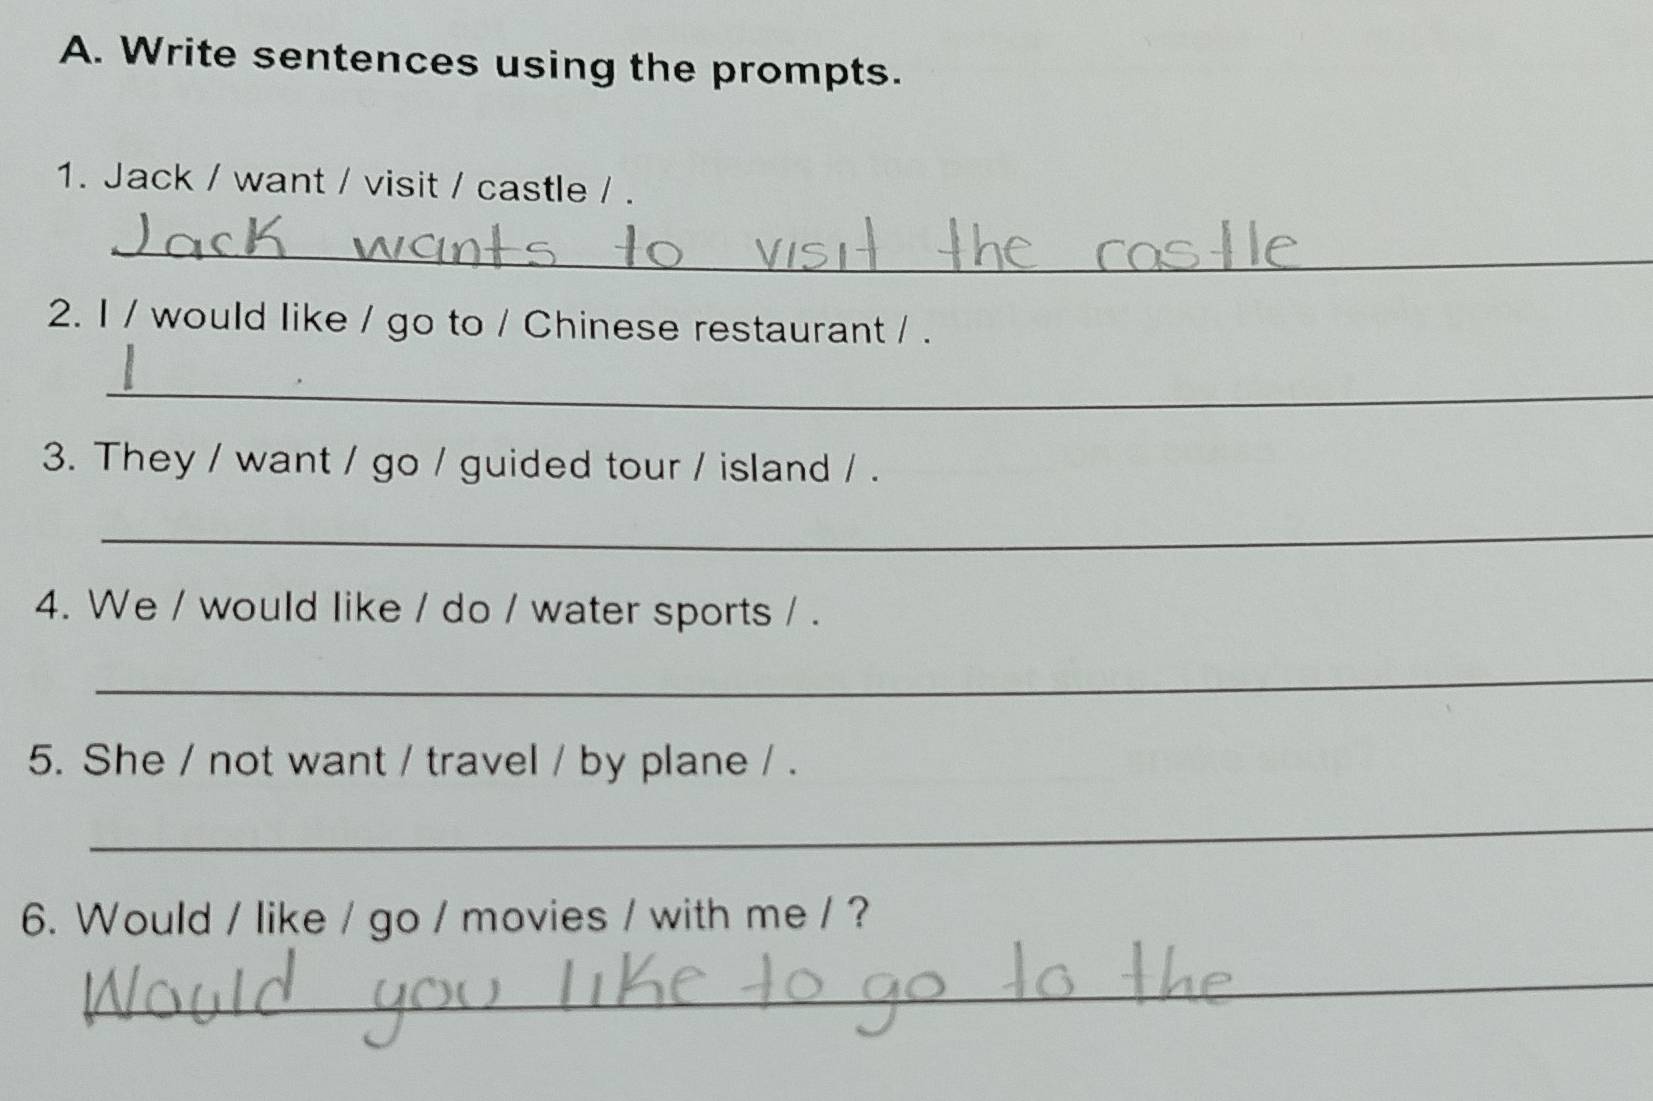 A. Write sentences using the prompts.
1. Jack / want / visit / castle / .
Jack wants to visit the castle
2. I / would like / go to / Chinese restaurant / .
I
3. They / want / go / guided tour / island / .
4. We / would like / do / water sports / .
5. She / not want / travel / by plane / .
6. Would / like / go / movies / with me / ?
Would you like to go to the